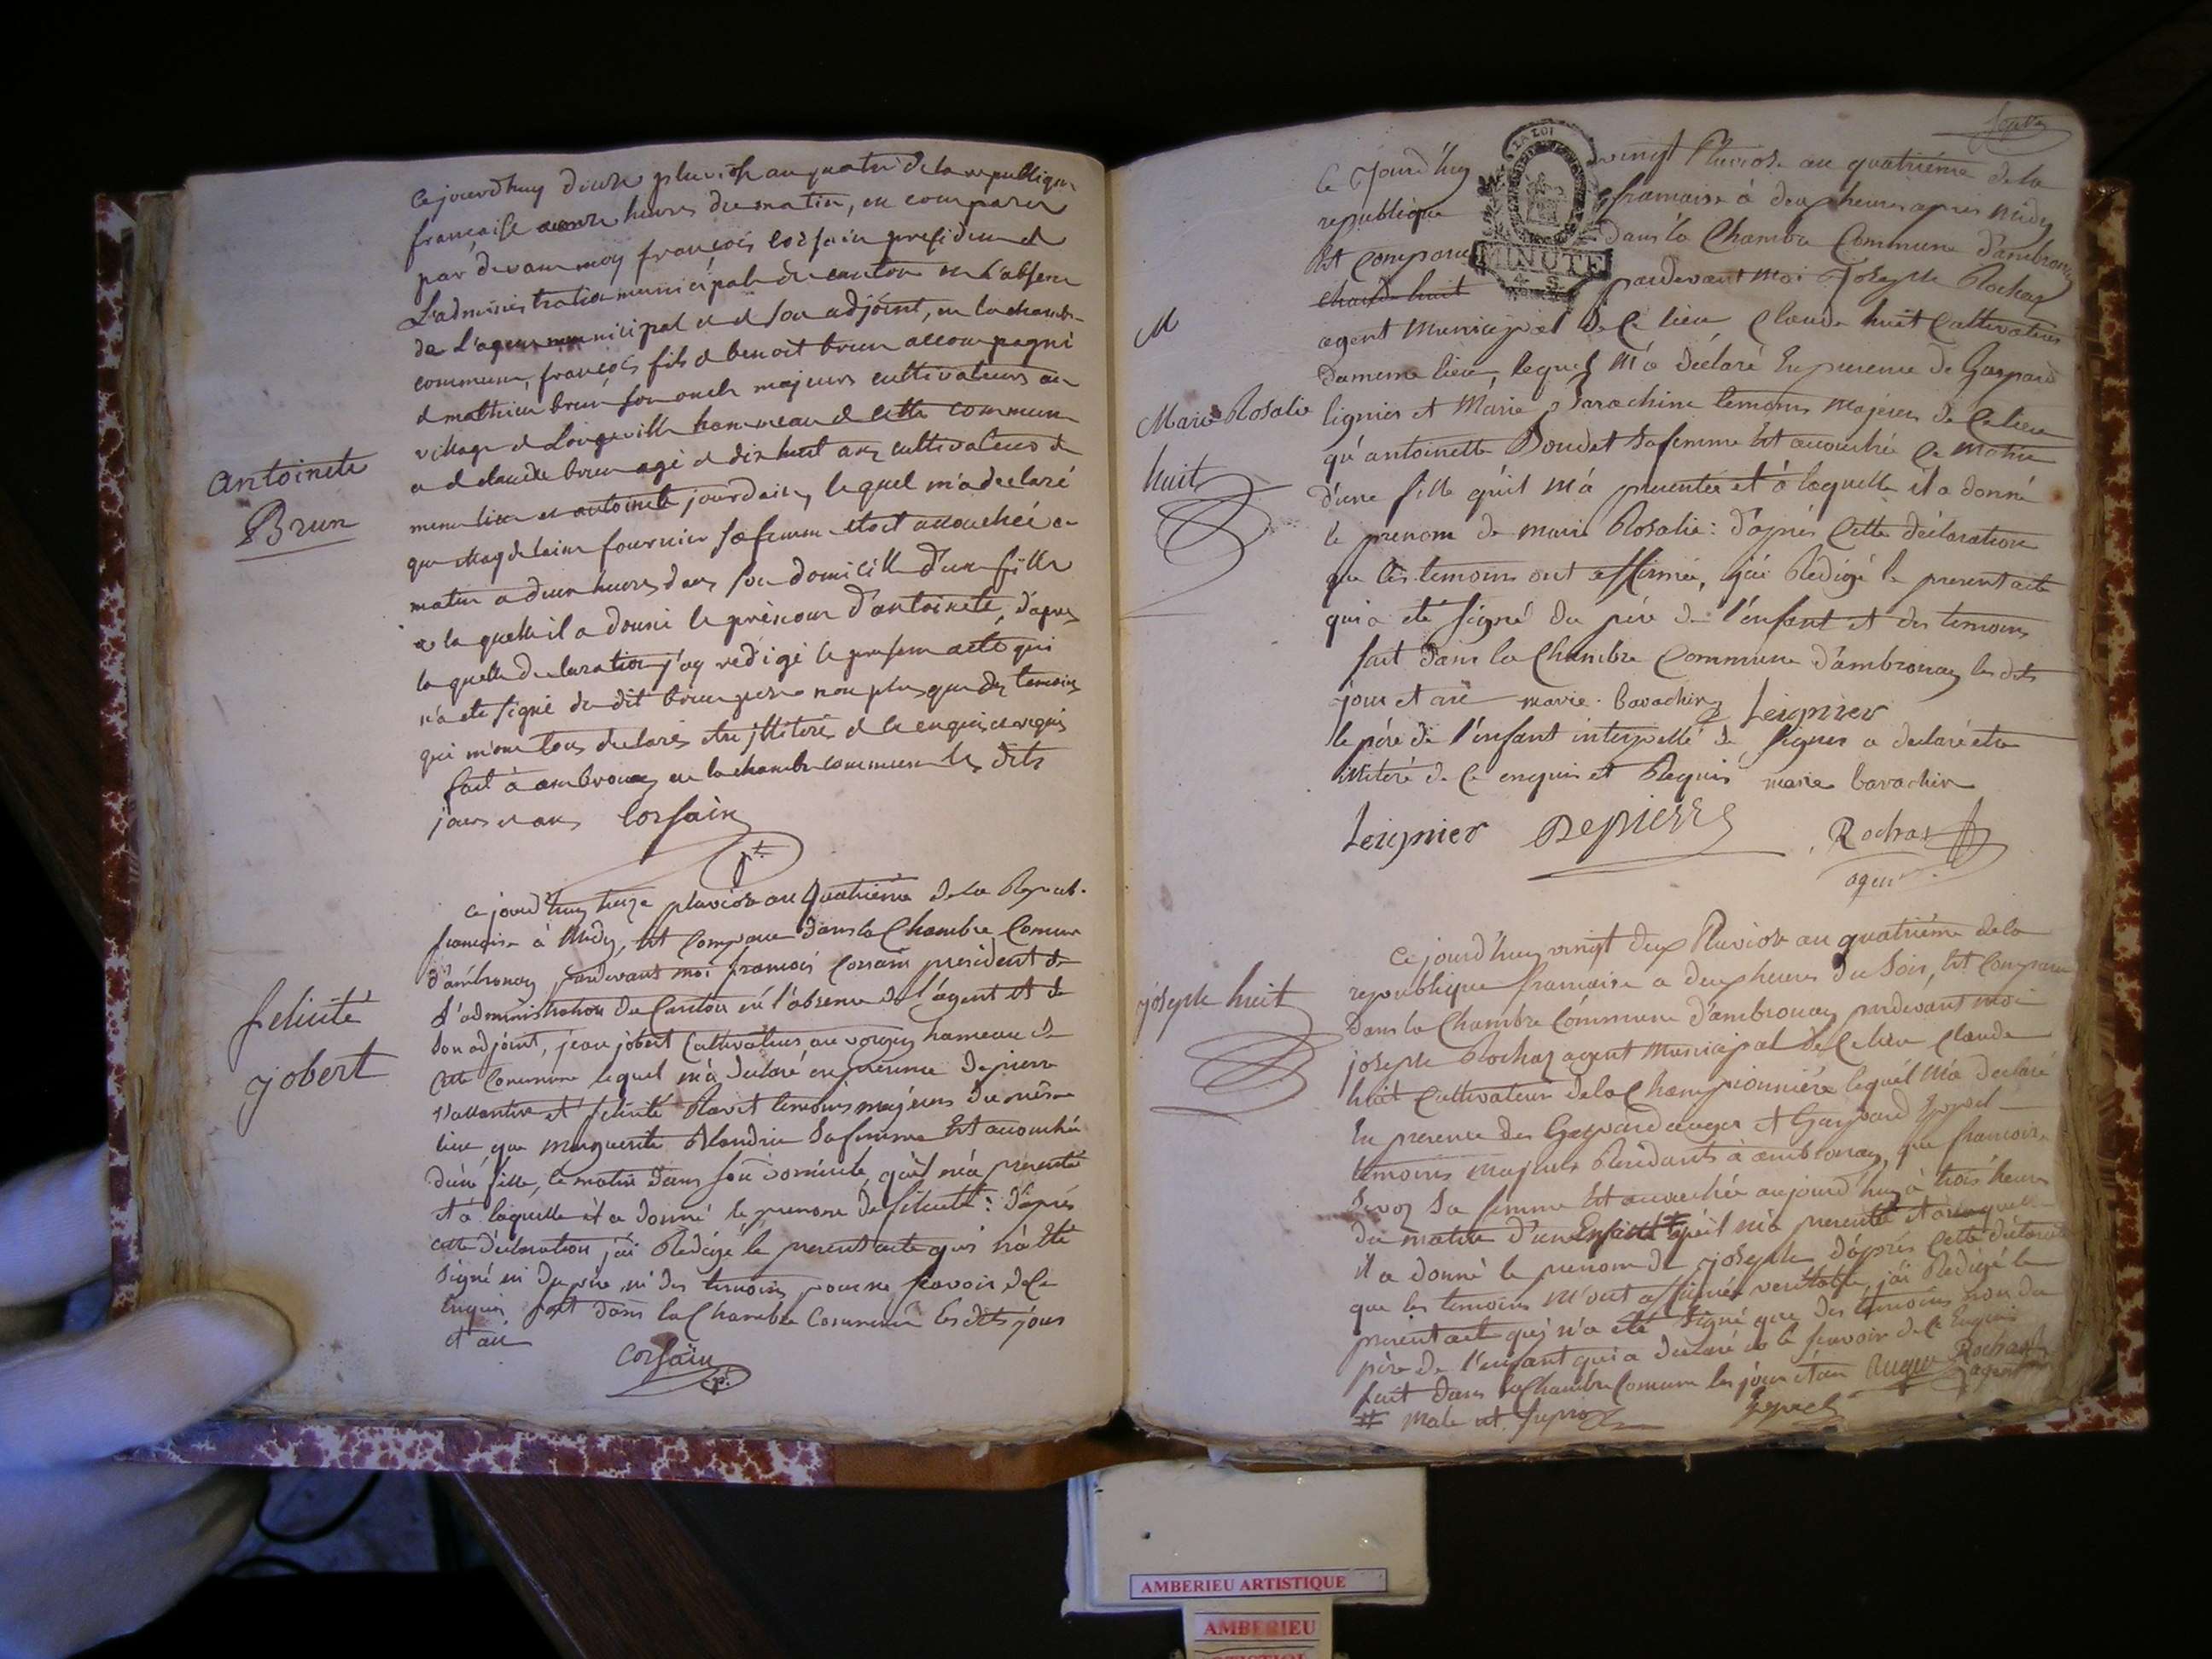 ce jourdhuy pluviose an quatre de la republique
francaise heures du matin, en comparu
par devant moy françois corsain president de
L'administration municipale du canton en l'absence
de L'agent municipal et de son adjoint, en la chambre
commune, françois fils de benoit brun accompagné
de mathieu brun son oncle majeurs cultivateurs au
village de Longeville hammeau de cette commune
et de claude brun agé de dix huit ans cultivateur du
meme lieu et antoinete jourdain, lequel m'a declaré
que Magdelaine fournier sa femme etoit accouchée ce
matin a heures dans son domicille d'une fille
a la quelle il a donné le prénom d'antoinete, d'apres
la quelle declaration j'ay redigé le present acte qui
n'a eté signé du dit brun pere non plus que des temoins
qui m'ont tous declarés etre illiterés de ce enquis et requis
fait à ambronay en la chambre commune les dits
jours et ans corsain
pt.
antoinete
Brun
ce jourd'huy treize pluviose an quatrième de la Repub.
francaise à Midy, est comparu dans la Chambre Comune
d'ambronay pardevant moi francois Corsain president de
l'administration du Canton en l'absence de l'agent et de
son adjoint, jean jobert Cultivateur au vorgey hameau de
cette Commune lequel m'a declaré en presence de pierre
Vallentin et felicité Ravet temoins majeurs du même
lieu que marguerite Blandin sa femme Est accouchée
d'une fille, ce matin dans son domicile, qu'il m'a presenté
et à laquelle il a donné le prenom de felicité: d'après
cette déclaration j'ai Rédigé le present acte qui n'a été
signé ni du père ni des temoins pour ne scavoir de ce
enquis fait dans la Chambre Commune les dits jour
et an
Corsain
p.
felicité
jobert
Ce Jourd'huy vingt Pluviose an quatrième de la
republique francaise à deux heures apres midy
Est comparu dans la Chambre Commune d'ambronay
claude huit pardevant moi Joseph Rochas
LA LOI
MINUTE
4 S
agent municipal de ce lieu, Claude huit Cultivateur
du meme lieu, lequel m'a déclaré En presence de Gaspard
lignier et Marie Barachine temoins majeurs de ce lieu
qu'antoinette Doudet sa femme Est accouchée ce matin
d'une fille qu'il m'a presentée et à laquelle il a donné
le prenom de marie Rosalie: d'après Cette déclaration
que les temoins ont affirmée, j'ai Rédigé le present acte
qui a été signé du père de l'enfant et des temoins
fait dans la Chambre Commune d'ambronay les dits
jour et an marie barachin Leignier
le père de l'enfant interpellé de signer a declaré etre
illiteré de ce enquis et Requis marie barachin
Leignier Depierre Rochas
agent
M
Marie Rosalie
huit
Ce jourd'huy vingt deux Pluviose an quatrième de la
republique francaise a deux heures du soir, Est Comparu
dans la Chambre Commune d'ambronay pardevant moi
joseph Rochas agent Municipal de ce lieu Claude
huit Cultivateur de la Championnière lequel m'a declaré
En presence des Gaspard auger et Gaspard
temoins majeurs Residants à ambronay, que francoise
sa femme Est accouchée aujourd'huy à trois heures
du matin d'un Enfant # qu'il m'a presenté et auquel
il a donné le prenom de joseph d'après cette déclaration
que les temoins m'ont affirmée veritable, j'ai Rédigé le
present acte qui n'a été signé que des temoins non du
père de l'enfant qui a declaré ne le scavoir de ce Enquis
fait dans la Chambre Comune les jour et an auger Rochas
agent
# male est
joseph huit
AMBERIEU ARTISTIQUE
AMBERIEU
ARTISTIQUE